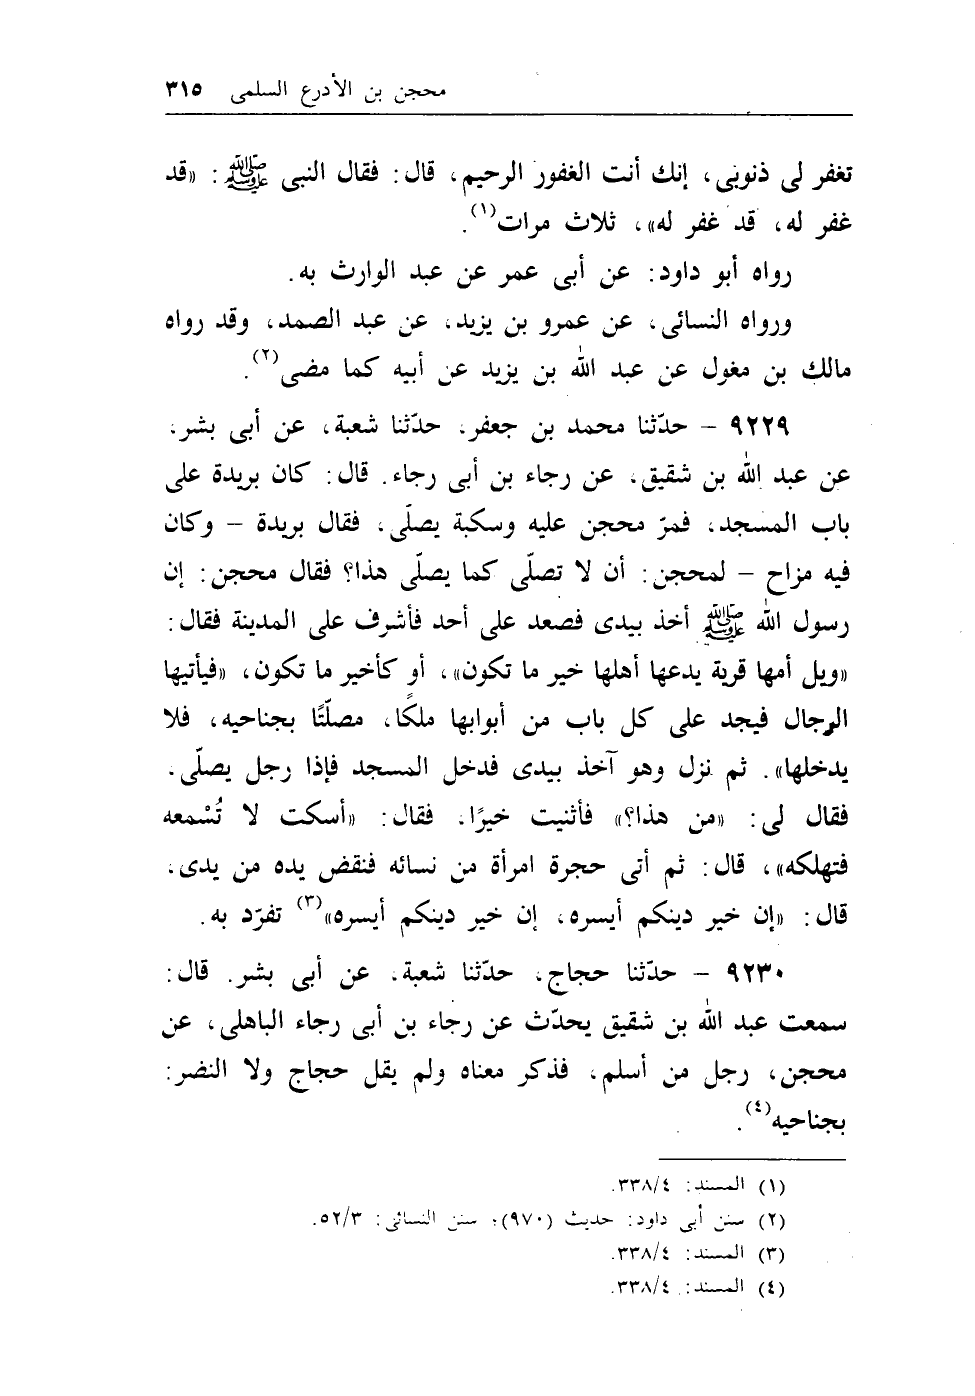 محجن بن الأدرع السلمى ٣١٥
تغفر لى ذنوبى، إنك أنت الغفور الرحيم، قال: فقال النبى ﷺ: «قد
غفر له، قد غفر له»، ثلاث مرات(١).
رواه أبو داود: عن أبى عمر عن عبد الوارث به.
ورواه النسائى، عن عمرو بن يزيد، عن عبد الصمد، وقد رواه
مالك بن مغول عن عبد الله بن يزيد عن أبيه كما مضى(٢).
٩٢٢٩ – حدّثنا محمد بن جعفر، حدّثنا شعبة، عن أبى بشر،
عن عبد الله بن شقيق، عن رجاء بن أبى رجاء. قال: كان بريدة على
باب المسجد، فمرّ محجن عليه وسكبة يصلّى، فقال بريدة – وكان
فيه مزاح – لمحجن: أن لا تصلّى كما يصلّى هذا؟ فقال محجن: إن
رسول الله ﷺ أخذ بيدى فصعد على أحد فأشرف على المدينة فقال:
«ويل أمها قرية يدعها أهلها خير ما تكون»، أو كأخير ما تكون، «فيأتيها
الرجال فيجد على كل باب من أبوابها ملكًا، مصلّتًا بجناحيه، فلا
يدخلها». ثم نزل وهو آخذ بيدى فدخل المسجد فإذا رجل يصلّى.
فقال لى: «من هذا؟» فأثنيت خيرًا، فقال: «أسكت لا تُسْمعه
فتهلكه»، قال: ثم أتى حجرة امرأة من نسائه فنقض يده من يدى،
قال: «إن خير دينكم أيسره، إن خير دينكم أيسره»(٣) تفرّد به.
٩٢٣٠ – حدّثنا حجاج، حدّثنا شعبة، عن أبى بشر. قال:
سمعت عبد الله بن شقيق يحدّث عن رجاء بن أبى رجاء الباهلى، عن
محجن، رجل من أسلم، فذكر معناه ولم يقل حجاج ولا النضر:
بجناحيه(٤).
(١) المسند: ٣٣٨/٤.
(٢) سنن أبى داود: حديث (٩٧٠)؛ سنن النسائى: ٥٢/٣.
(٣) المسند: ٣٣٨/٤.
(٤) المسند: ٣٣٨/٤.